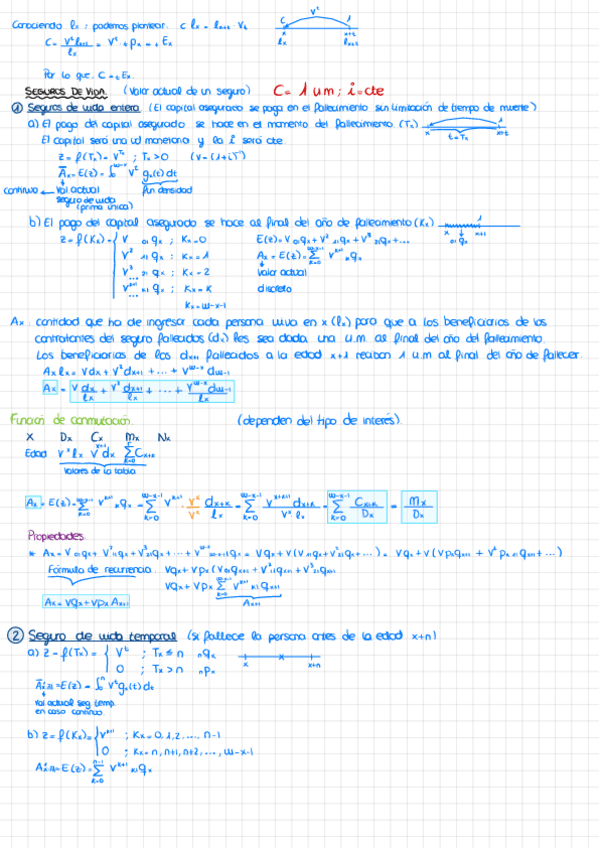 Conociendo lx : podemos plantear. C lx = lx+t Vt
C = V^t lx+t / lx = V^t · t Px = t Ex
C V^t 1
x x+t
lx lx+t
Por lo que, C = t Ex.
SEGUROS DE VIDA. (Valor actual de un seguro) C = 1 um ; i = cte
① Seguros de vida entera (El capital asegurado se paga en el fallecimiento sin limitación de tiempo de muerte)
a) El pago del capital asegurado se hace en el momento del fallecimiento. (Tx)
1
x t = Tx x+t
El capital será una ud monetaria y la i será cte.
z = f(Tx) = V^Tx ; Tx > 0 (V = (1+i)^-1)
Āx = E(z) = ∫0^w-x V^t gx(t) dt
continuo ← Val actual seguro de vida (prima única)
fun densidad
b) El pago del capital asegurado se hace al final del año de fallecimiento (Kx)
1
x 0|qx x+1
z = f(Kx) = { V 0|qx ; Kx = 0
V^2 1|qx ; Kx = 1
V^3 2|qx ; Kx = 2
...
V^k+1 k|qx ; Kx = K
...
Kx = w-x-1
E(z) = V 0|qx + V^2 1|qx + V^3 2|qx + ...
Ax = E(z) = Σ k=0 w-x-1 V^k+1 k|qx
Valor actual
discreto
Ax : cantidad que ha de ingresar cada persona viva en x (lx) para que a los beneficiarios de los
contratantes del seguro fallecidos (dx) les sea dada una u.m. al final del año del fallecimiento.
Los beneficiarios de los dx+1 fallecidos a la edad x+1 reciban 1 u.m al final del año de fallecer.
Ax lx = V dx + V^2 dx+1 + ... + V^w-x dw-1
Ax = V dx / lx + V^2 dx+1 / lx + ... + V^w-x dw-1 / lx
Función de conmutación. (dependen del tipo de interés)
X Dx Cx Mx Nx
Edad V^x lx V^x+1 dx Σ k=0 Cx+k
Valores de la tabla
Ax = E(z) = Σ k=0 w-x-1 V^k+1 k|qx = Σ k=0 w-x-1 V^k+1 · V^x / V^x · dx+k / lx = Σ k=0 w-x-1 V^x+k+1 dx+k / V^x lx = Σ k=0 w-x-1 Cx+k / Dx = Mx / Dx
Propiedades.
* Ax = V 0|qx + V^2 1|qx + V^3 2|qx + ... + V^w-x w-x-1|qx = Vqx + V(V 1|qx + V^2 2|qx + ...) = Vqx + V(V Px qx+1 + V^2 Px 1|qx+1 + ...)
Fórmula de recurrencia. Vqx + VPx (V 0|qx+1 + V^2 1|qx+1 + V^3 2|qx+1
Vqx + VPx Σ k=0 V^k+1 k|qx+1
Ax+1
Ax = Vqx + VPx Ax+1
② Seguro de vida temporal (si fallece la persona antes de la edad x+n)
a) z = f(Tx) = { V^t ; Tx ≤ n nqx
0 ; Tx > n nPx
x x x+n
Āx:n = E(z) = ∫0^n V^t gx(t) dt
Val actual seg temp.
en caso continuo.
b) z = f(Kx) = { V^k+1 ; Kx = 0, 1, 2, ..., n-1
0 ; Kx = n, n+1, n+2, ..., w-x-1
Ax:n = E(z) = Σ k=0 n-1 V^k+1 k|qx